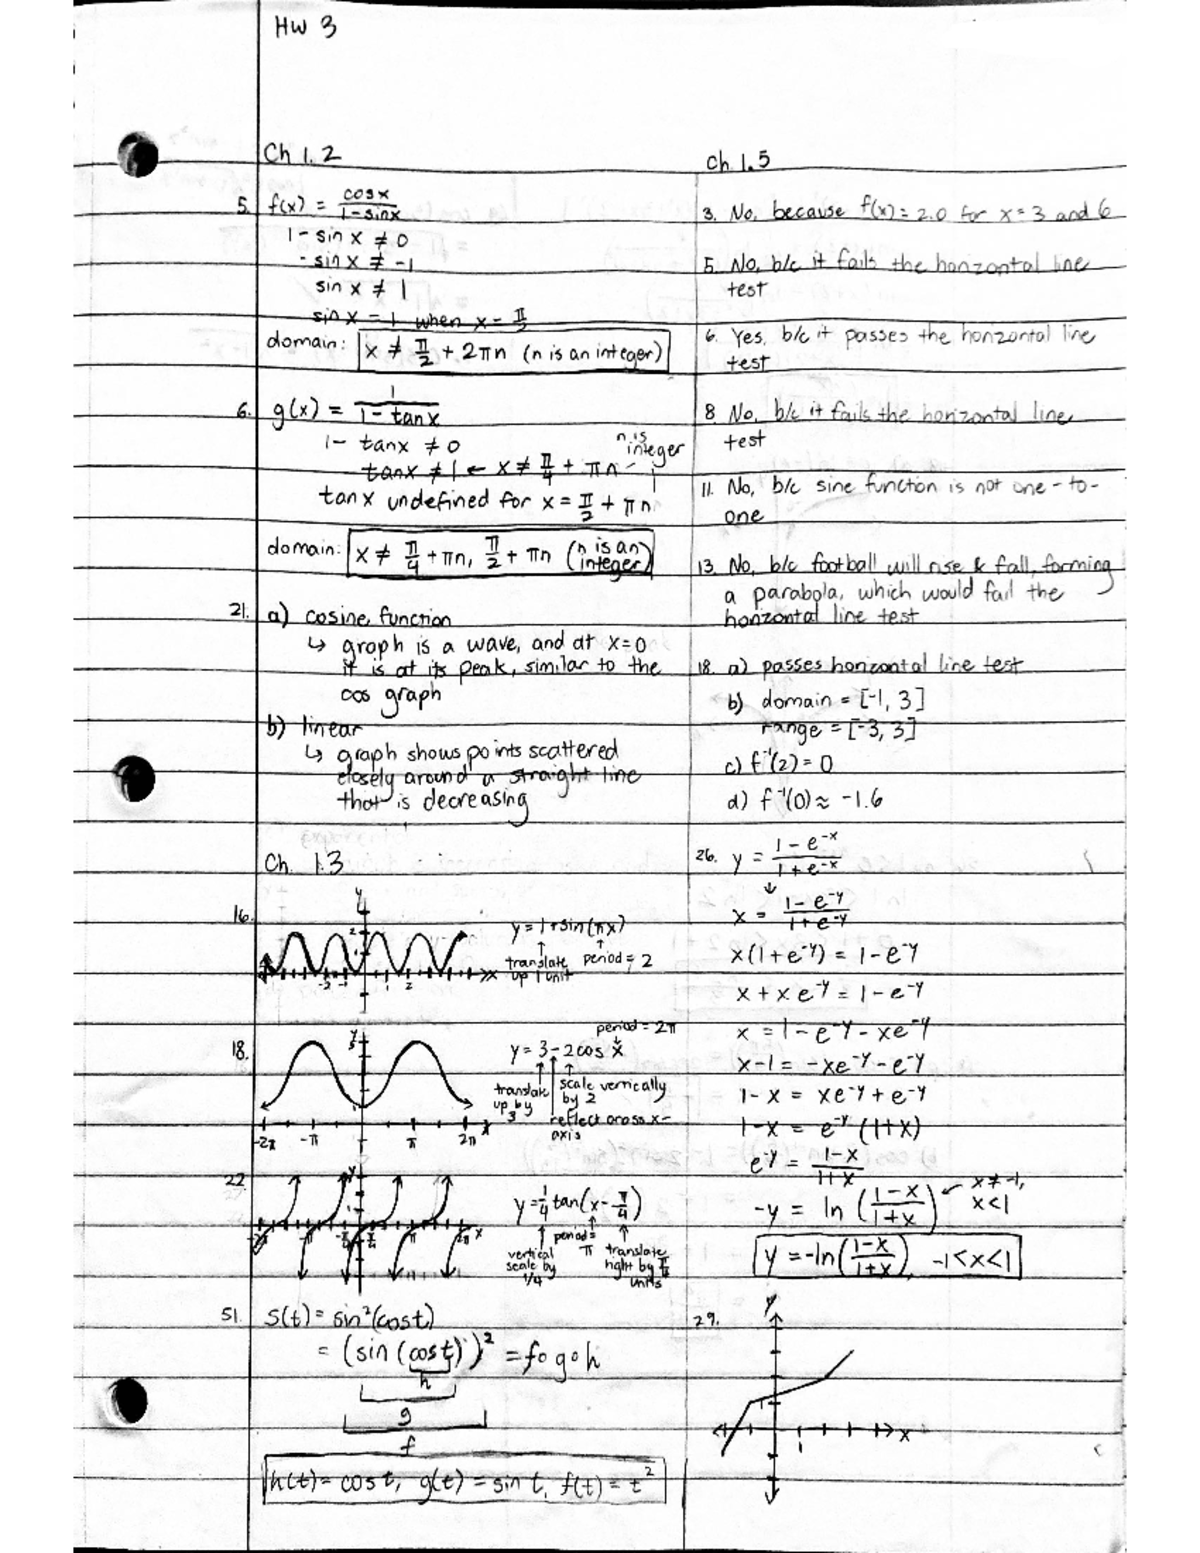 HW 3
Ch 1.2
5. f(x) = cosx / 1-sinx
1 - sin x ≠ 0
- sin x ≠ -1
sin x ≠ 1
sin x = 1 when x = π/2
domain: x ≠ π/2 + 2πn (n is an integer)
6. g(x) = 1 / 1 - tanx
1 - tanx ≠ 0
tanx ≠ 1 ← x ≠ π/4 + πn
n is
integer
tan x undefined for x = π/2 + πn
domain: x ≠ π/4 + πn, π/2 + πn (n is an integer)
21. a) cosine function
↳ graph is a wave, and at x=0
it is at its peak, similar to the
cos graph
b) linear
↳ graph shows points scattered
closely around a straight line
that is decreasing
Ch. 1.3
16. y
y = 1 + sin(πx)
translate
up 1 unit
period = 2
-2 -1 1 2 x
18. y
period = 2π
y = 3 - 2cos x
translate
up by
3
scale vertically
by 2
reflect cross x-
axis
-2π -π π 2π x
22 y
y = 1/4 tan(x - π/4)
vertical
scale by
1/4
period =
π
translate
right by π/4
units
2π x
51. s(t) = sin²(cost)
= (sin (cost))² = f∘g∘h
h
g
f
h(t) = cos t, g(t) = sin t, f(t) = t²
Ch. 1.5
3. No, because f(x) = 2.0 for x = 3 and 6
5. No, b/c it fails the horizontal line
test
6. Yes, b/c it passes the horizontal line
test
8 No, b/c it fails the horizontal line
test
11. No, b/c sine function is not one-to-
one
13. No, b/c football will rise & fall, forming
a parabola, which would fail the
horizontal line test
18. a) passes horizontal line test
b) domain = [-1, 3]
range = [-3, 3]
c) f⁻¹(2) = 0
d) f⁻¹(0) ≈ -1.6
26. y = 1 - e^-x / 1 + e^-x
↓
x = 1 - e^-y / 1 + e^-y
x(1 + e^-y) = 1 - e^-y
x + xe^-y = 1 - e^-y
x = 1 - e^-y - xe^-y
x - 1 = -xe^-y - e^-y
1 - x = xe^-y + e^-y
1 - x = e^-y (1+x)
e^-y = 1-x / 1+x
-y = ln (1-x / 1+x) ← x ≠ -1,
x < 1
y = -ln(1-x / 1+x), -1 < x < 1
29. y
1
1 x